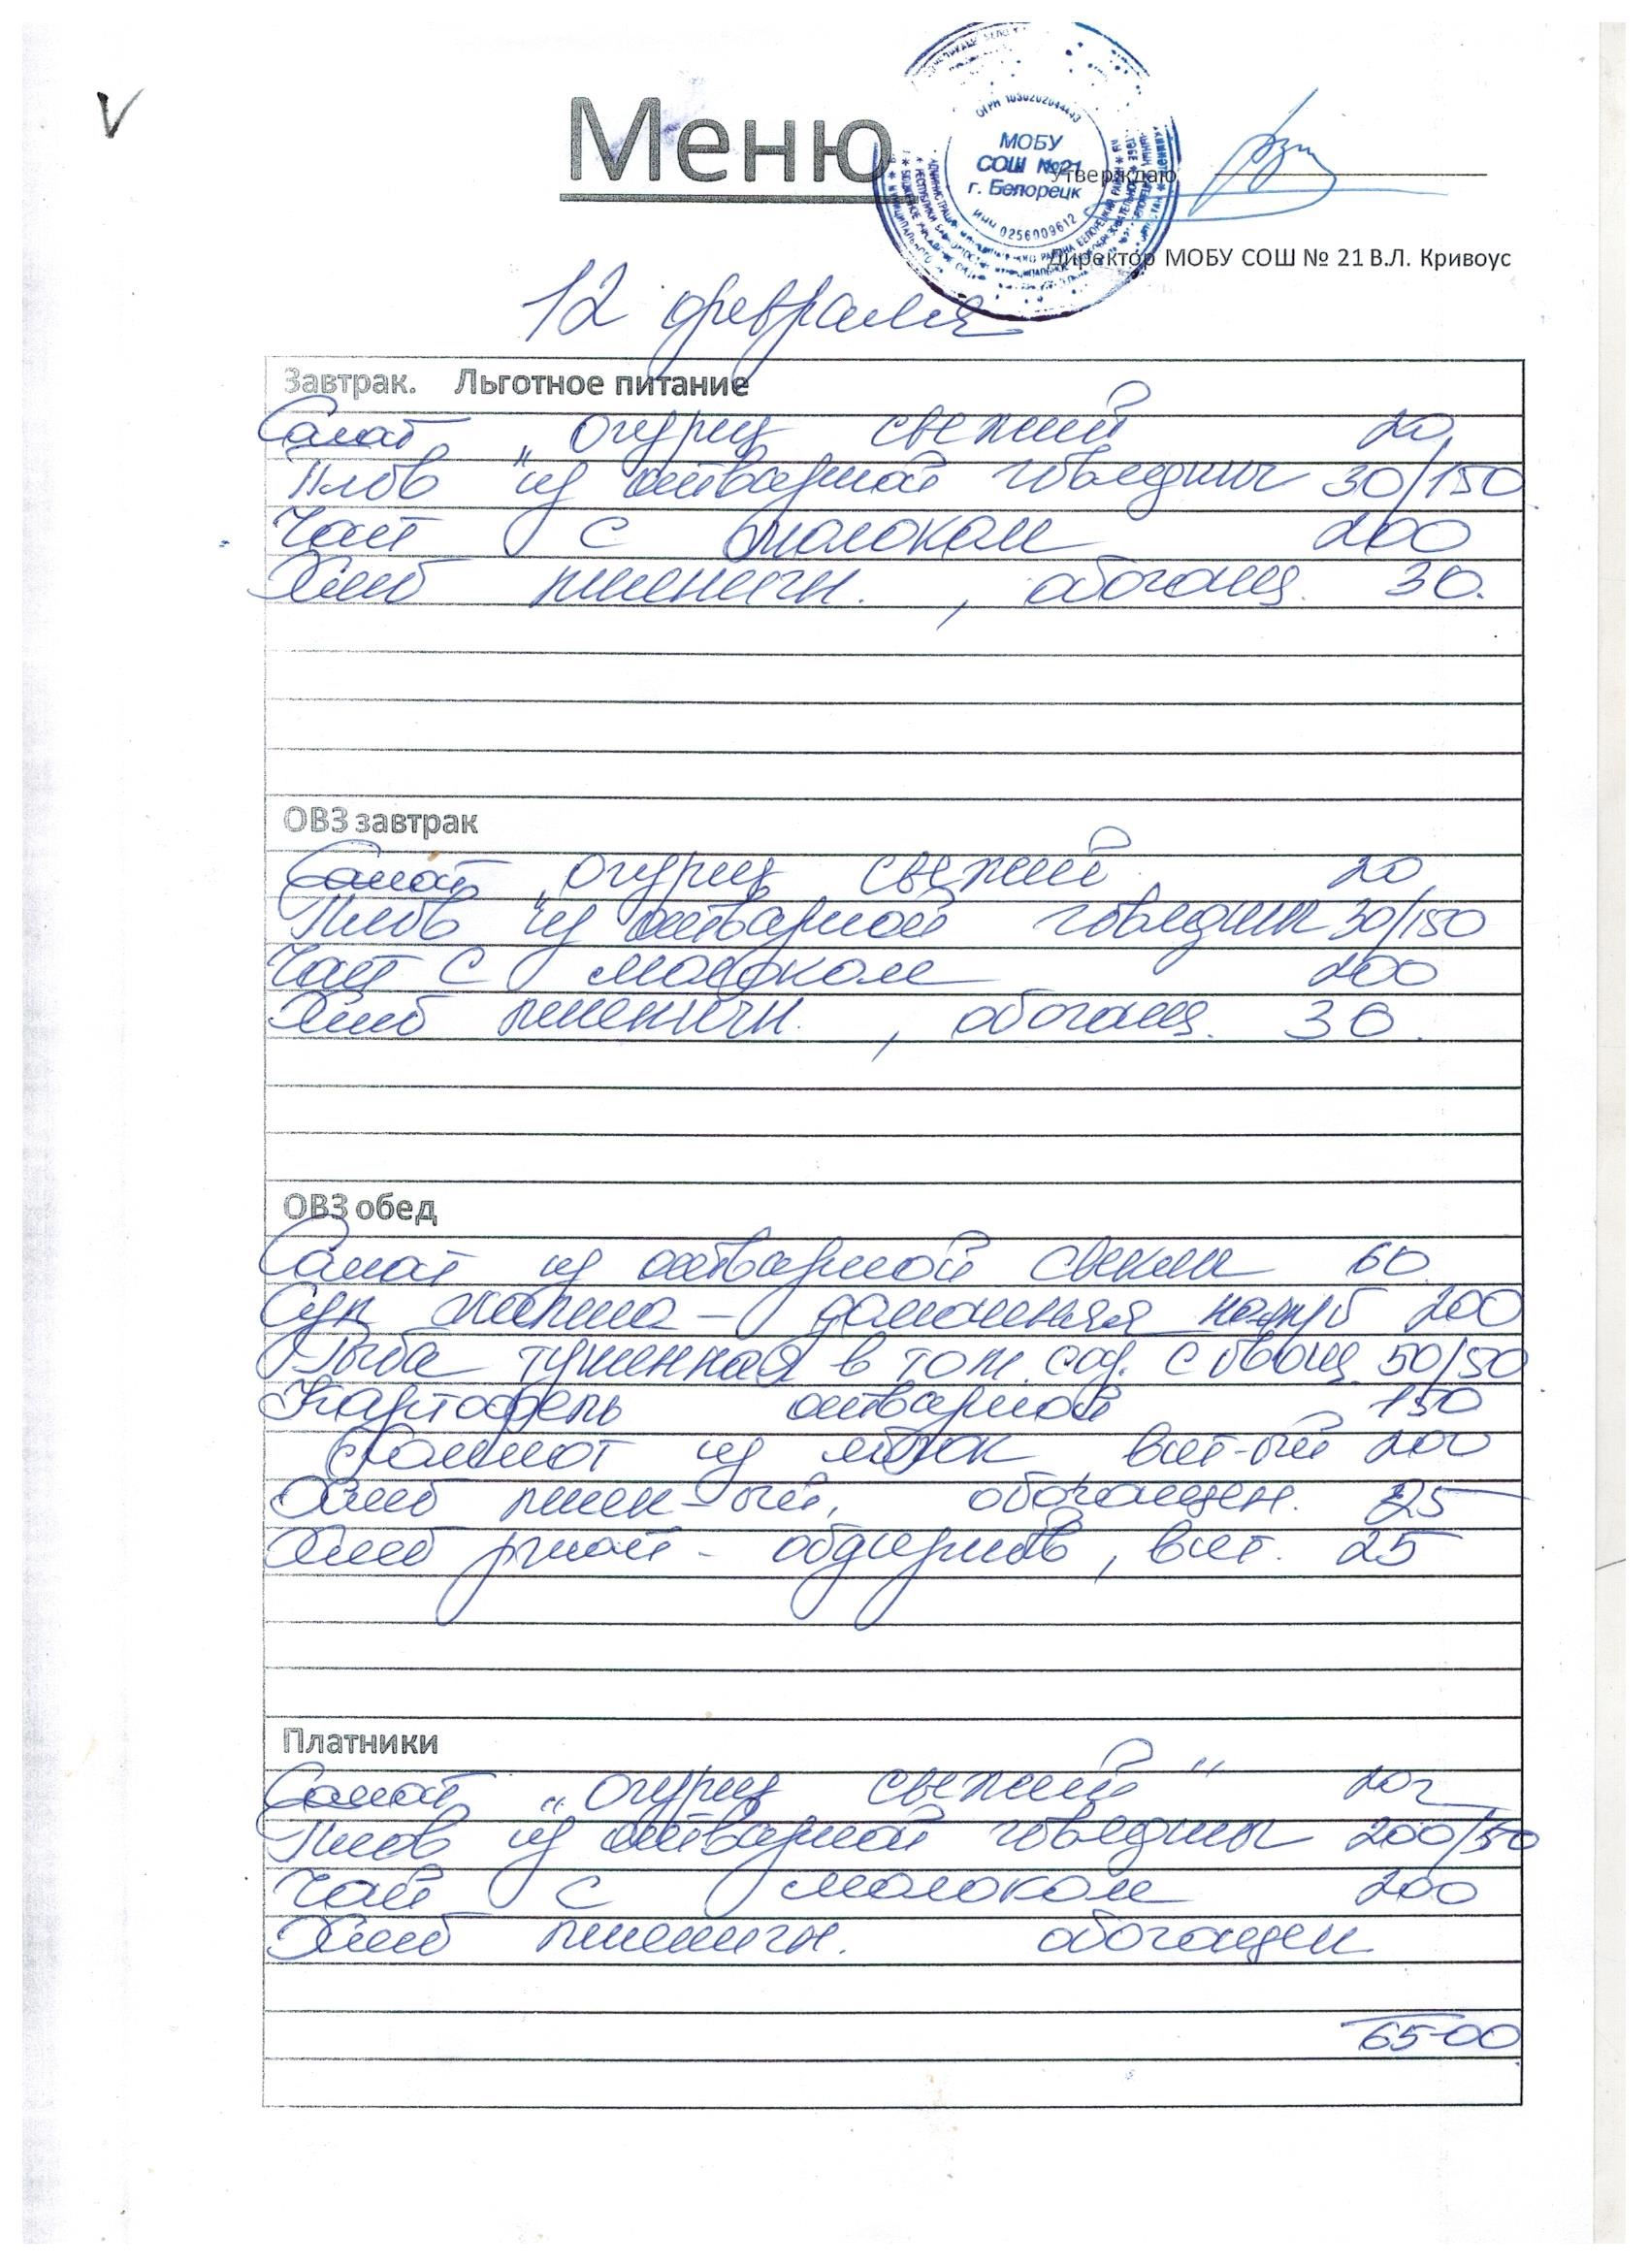 V
Меню
ОГРН 1030202044443
МОБУ
СОШ №21
г. Белорецк
ИНН 0256009612
Утверждаю
Директор МОБУ СОШ № 21 В.Л. Кривоус
12 февраля
Завтрак. Льготное питание
Салат „Огурец свежий 20
Плов из отварной говядины 30/150
Чай с молоком 200
Хлеб пшеничн. , обогащ. 30.
ОВЗ завтрак
Салат „Огурец свежий 20
Плов из отварной говядины 30/150
Чай с молоком 200
Хлеб пшеничн. , обогащ. 30.
ОВЗ обед
Салат из отварной свеклы 60
Суп лапша - домашняя 200
Рыба тушенная в том. с овощ. 50/50
Картофель отварной 150
Компот из яблок вит-ый 200
Хлеб пшен-ый, обогащен. 25
Хлеб ржаной - обдирный, вит. 25
Платники
Салат „Огурец свежий" 20г
Плов из отварной говядины 200/50
Чай с молоком 200
Хлеб пшеничн. обогащен
65-00